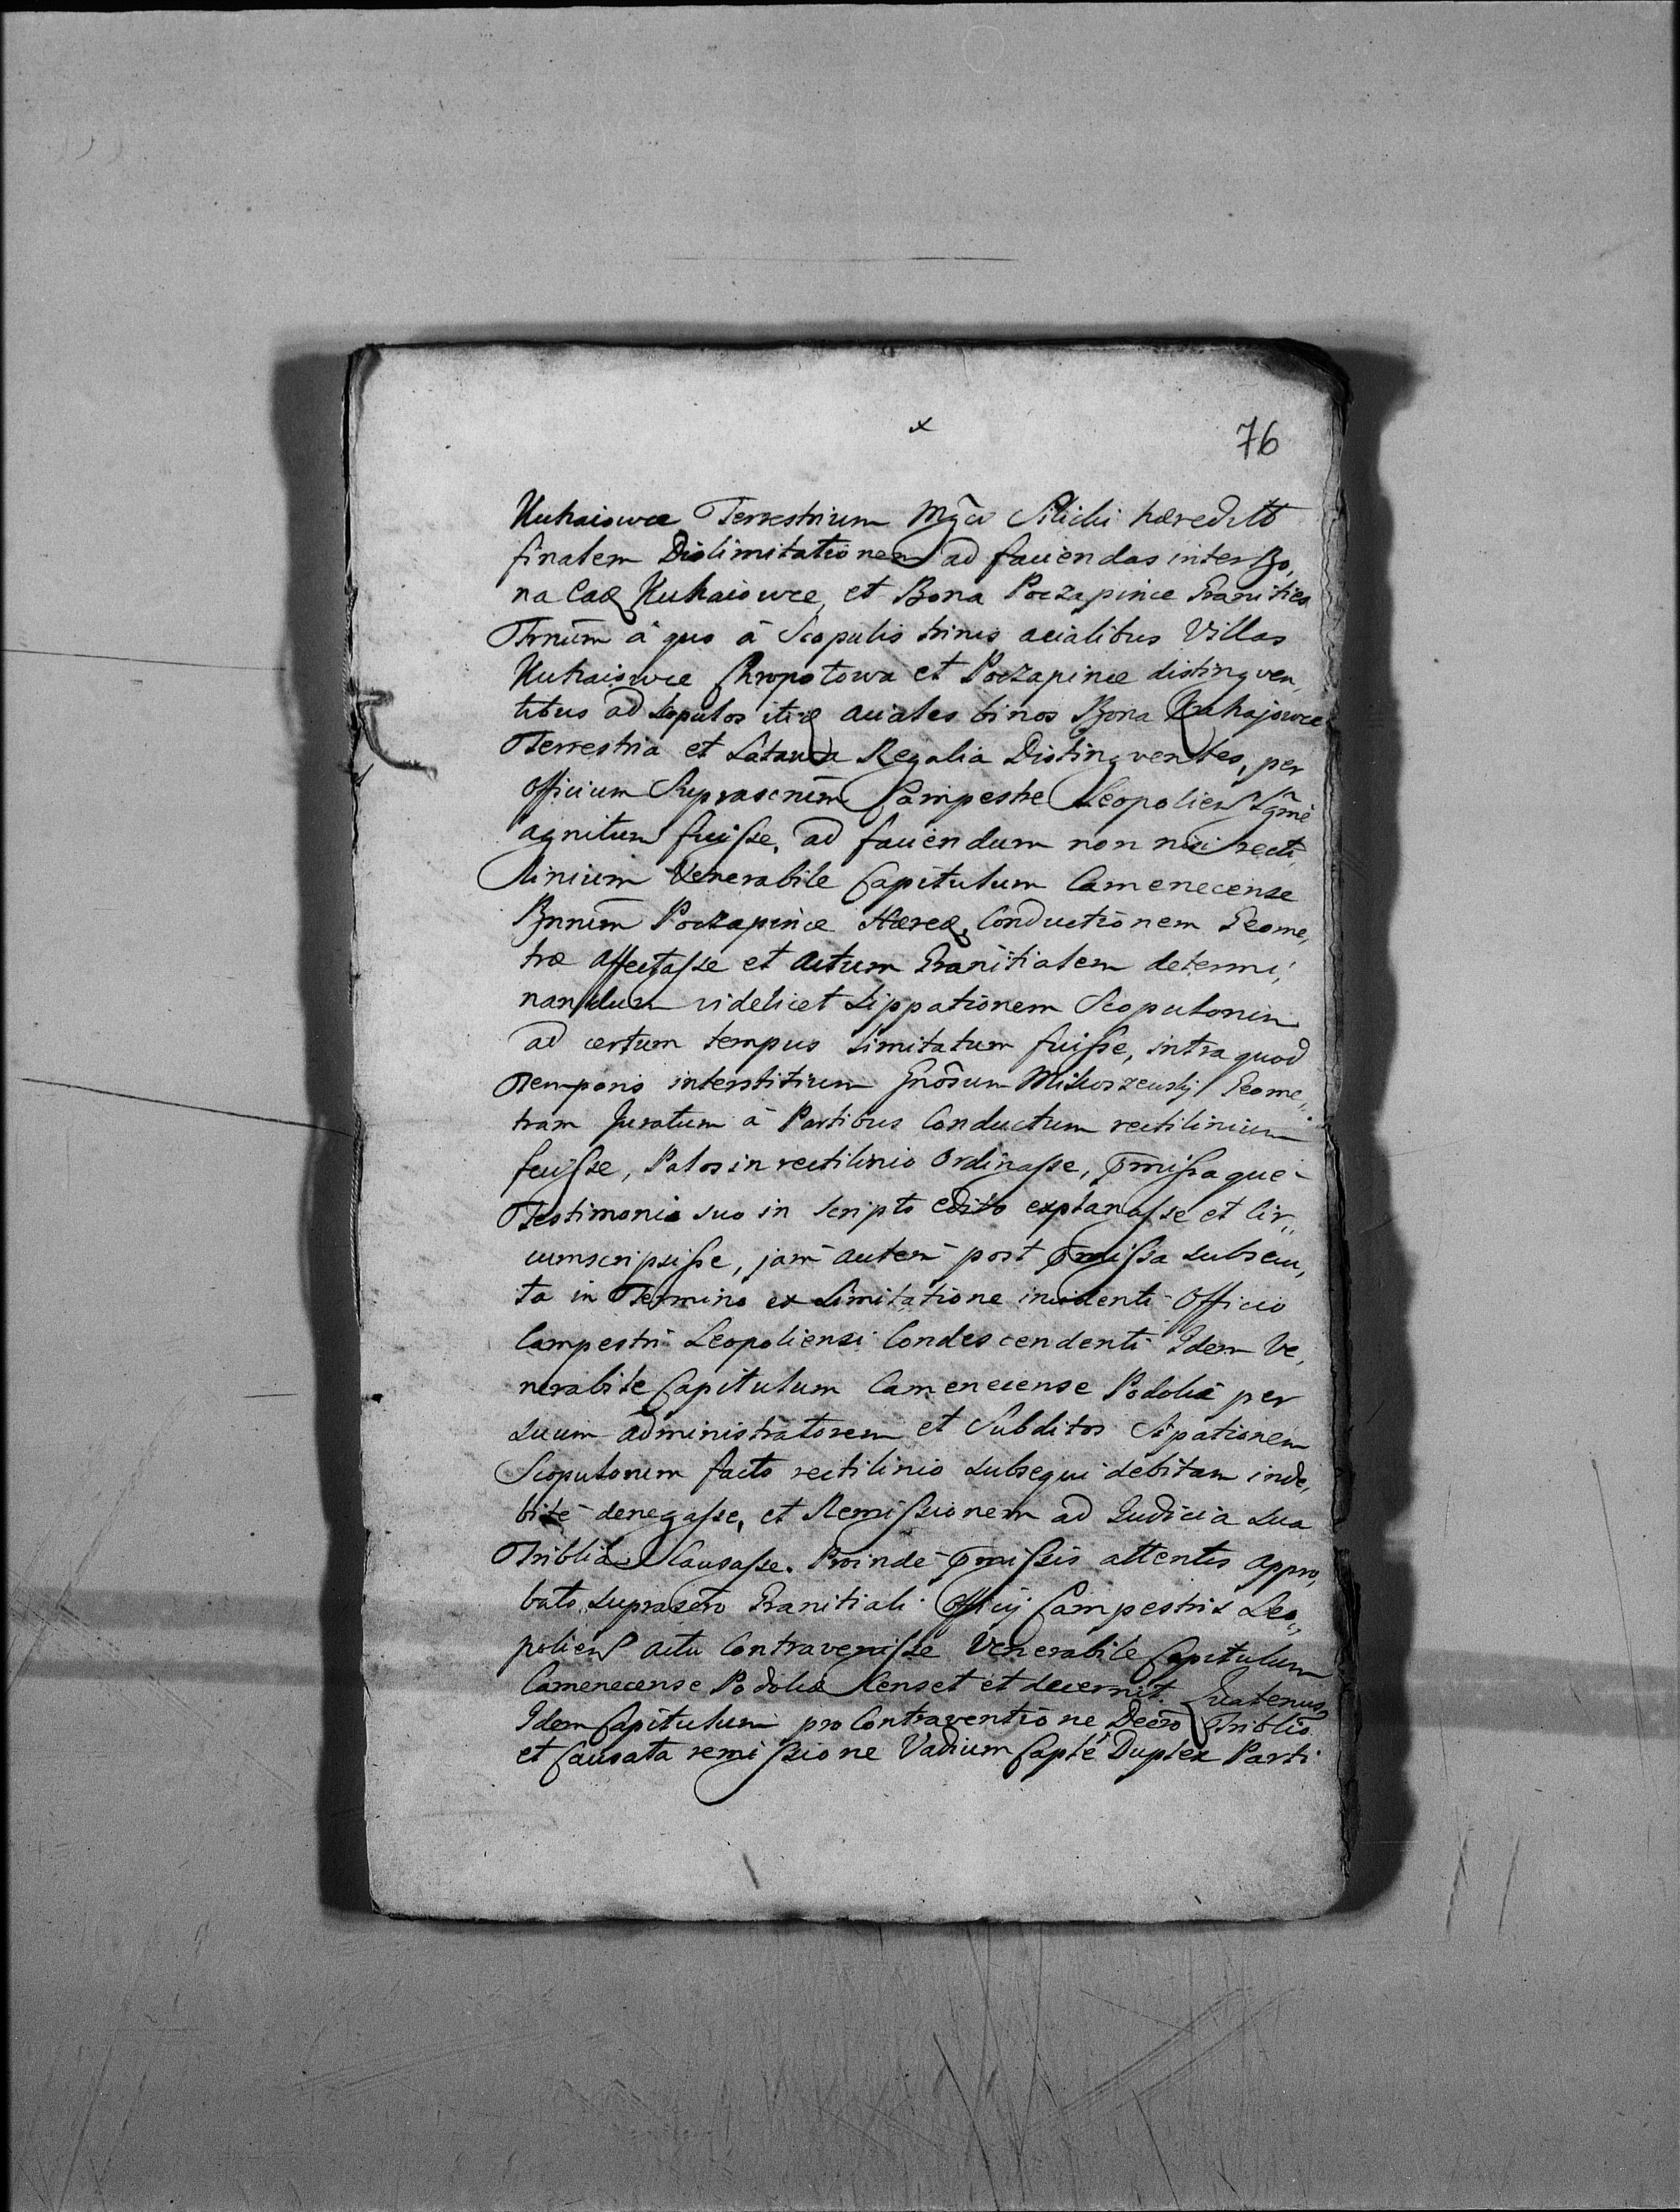 76
Kuhaiowce Terrestrium Mgci Silicki hæredit
finalem Dislimitationem ad faciendas inter Bo,
na Eadę Kuhaiowce, et Bona Poczapince Granities
Trnūm â quo â Scopulis trinis acialibus Villas
Kuhaiowce Chropotowa et Poczapince distingven,
tibus ad scopulos itidę aciales binos Bona Kuhajowce
Terrestria et Latawa Regalia Distingventes, per
Officium Suprascrūm Campestre Leopolien Lgmè
agnitum fuisse, ad faciendum non nisi recti
linium Venerabile Capitulum Camenecense
Bnnūm Poczapince Hæred. Conductionem Geome,
træ affectasse et actum Granitialem determi,
nandum videlicet Sippationem Scopulorum
ad certum tempus limitatum fuisse, intra quod
temporis interstitium Gnōsum Mikoszewskj Geome,
tram Juratum â Partibus Conductum rectilinium
fecisse, Palos in rectilinio Ordinasse, p̄missaque
Testimonio suo in scripto edito explanasse et Cir,,
cumscripsisse, jam autem post p̄missa subsecu,
ta in Termino ex Limitatione incidenti Officio
Campestri Leopoliensi Condescendenti Idem Ve,
nerabile Capitulum Camenecense Podoliæ per
suum administratorem et Subditos Sipationem
Scopulorum facto rectilinio subsequi debitam inde,
bite denegasse, et Remissionem ad Judicia sua
Triblia Causasse. Proinde p̄missis attentis appro,
bato suprascro Granitiali Officij Campestris Leo,,
polien actu Contravenisse Venerabile Capitulum
Camenecense Podoliæ Censet et decernit. Quatenus
Idem Capitulum pro Contraventione Decro Triblio
et Causata remissione Vadium Caplé Duplex Parti